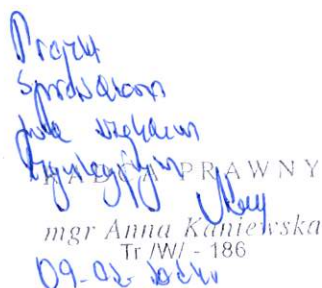 Projekt
sprawdzono
pod względem
RADCA PRAWNY
mgr Anna Kaniewska
Tr /W/ - 186
09-02-